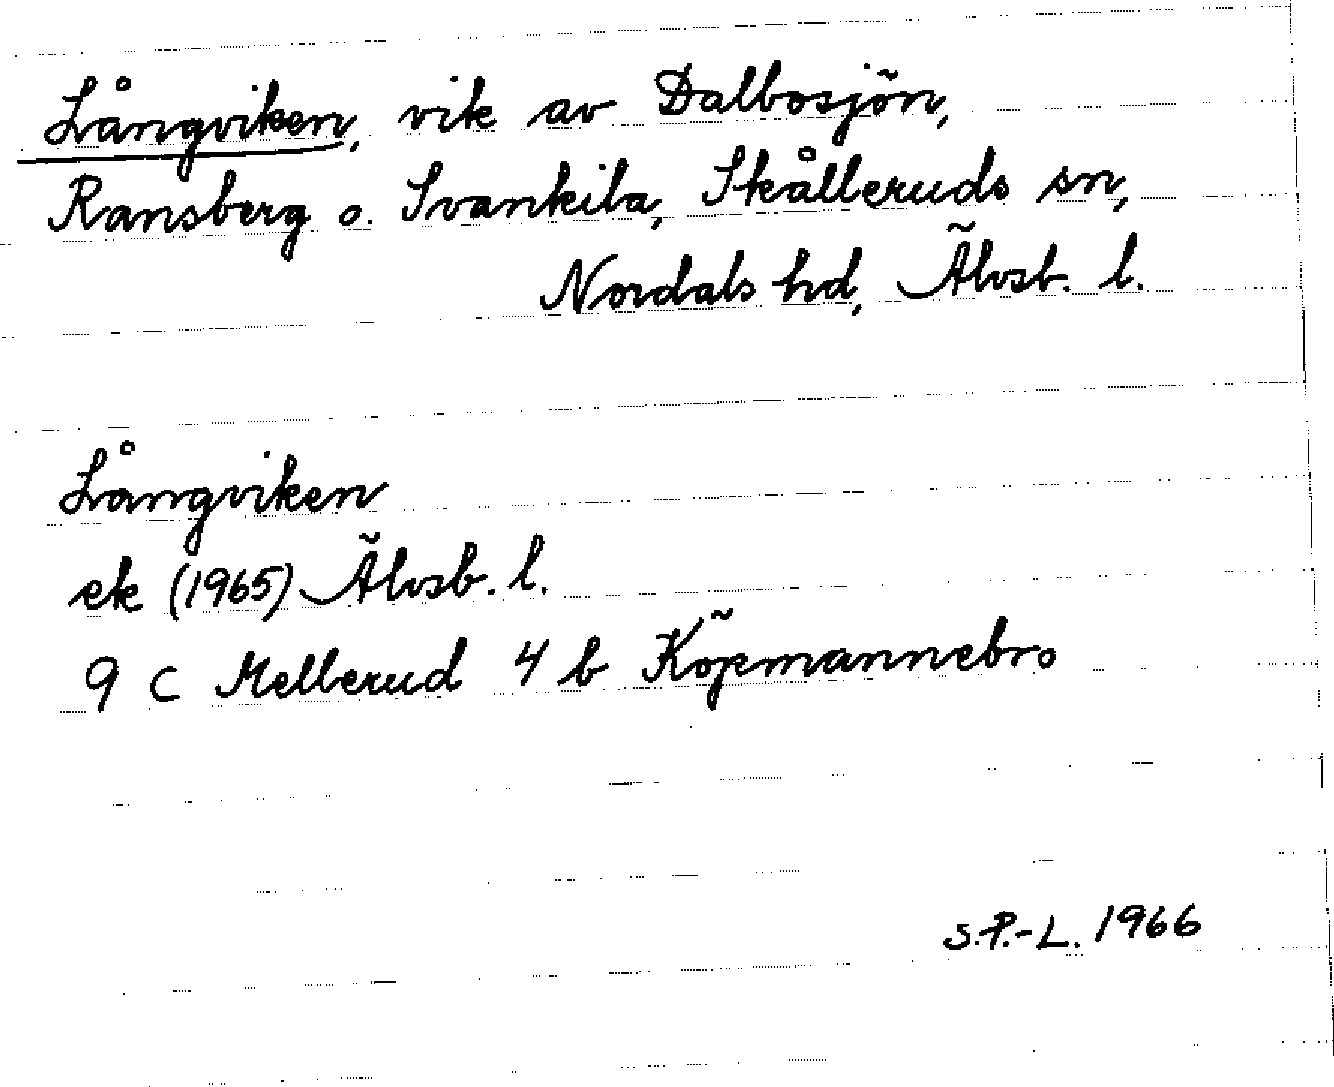 Långviken, vik av Dalbosjön,
Ransberg o. Svankila, Skålleruds sn,
Nordals hd, Älvsb. l.
Långviken
ek (1965) Älvsb. l.
9 C Mellerud 4 b Köpmannebro
S.P.-L. 1966